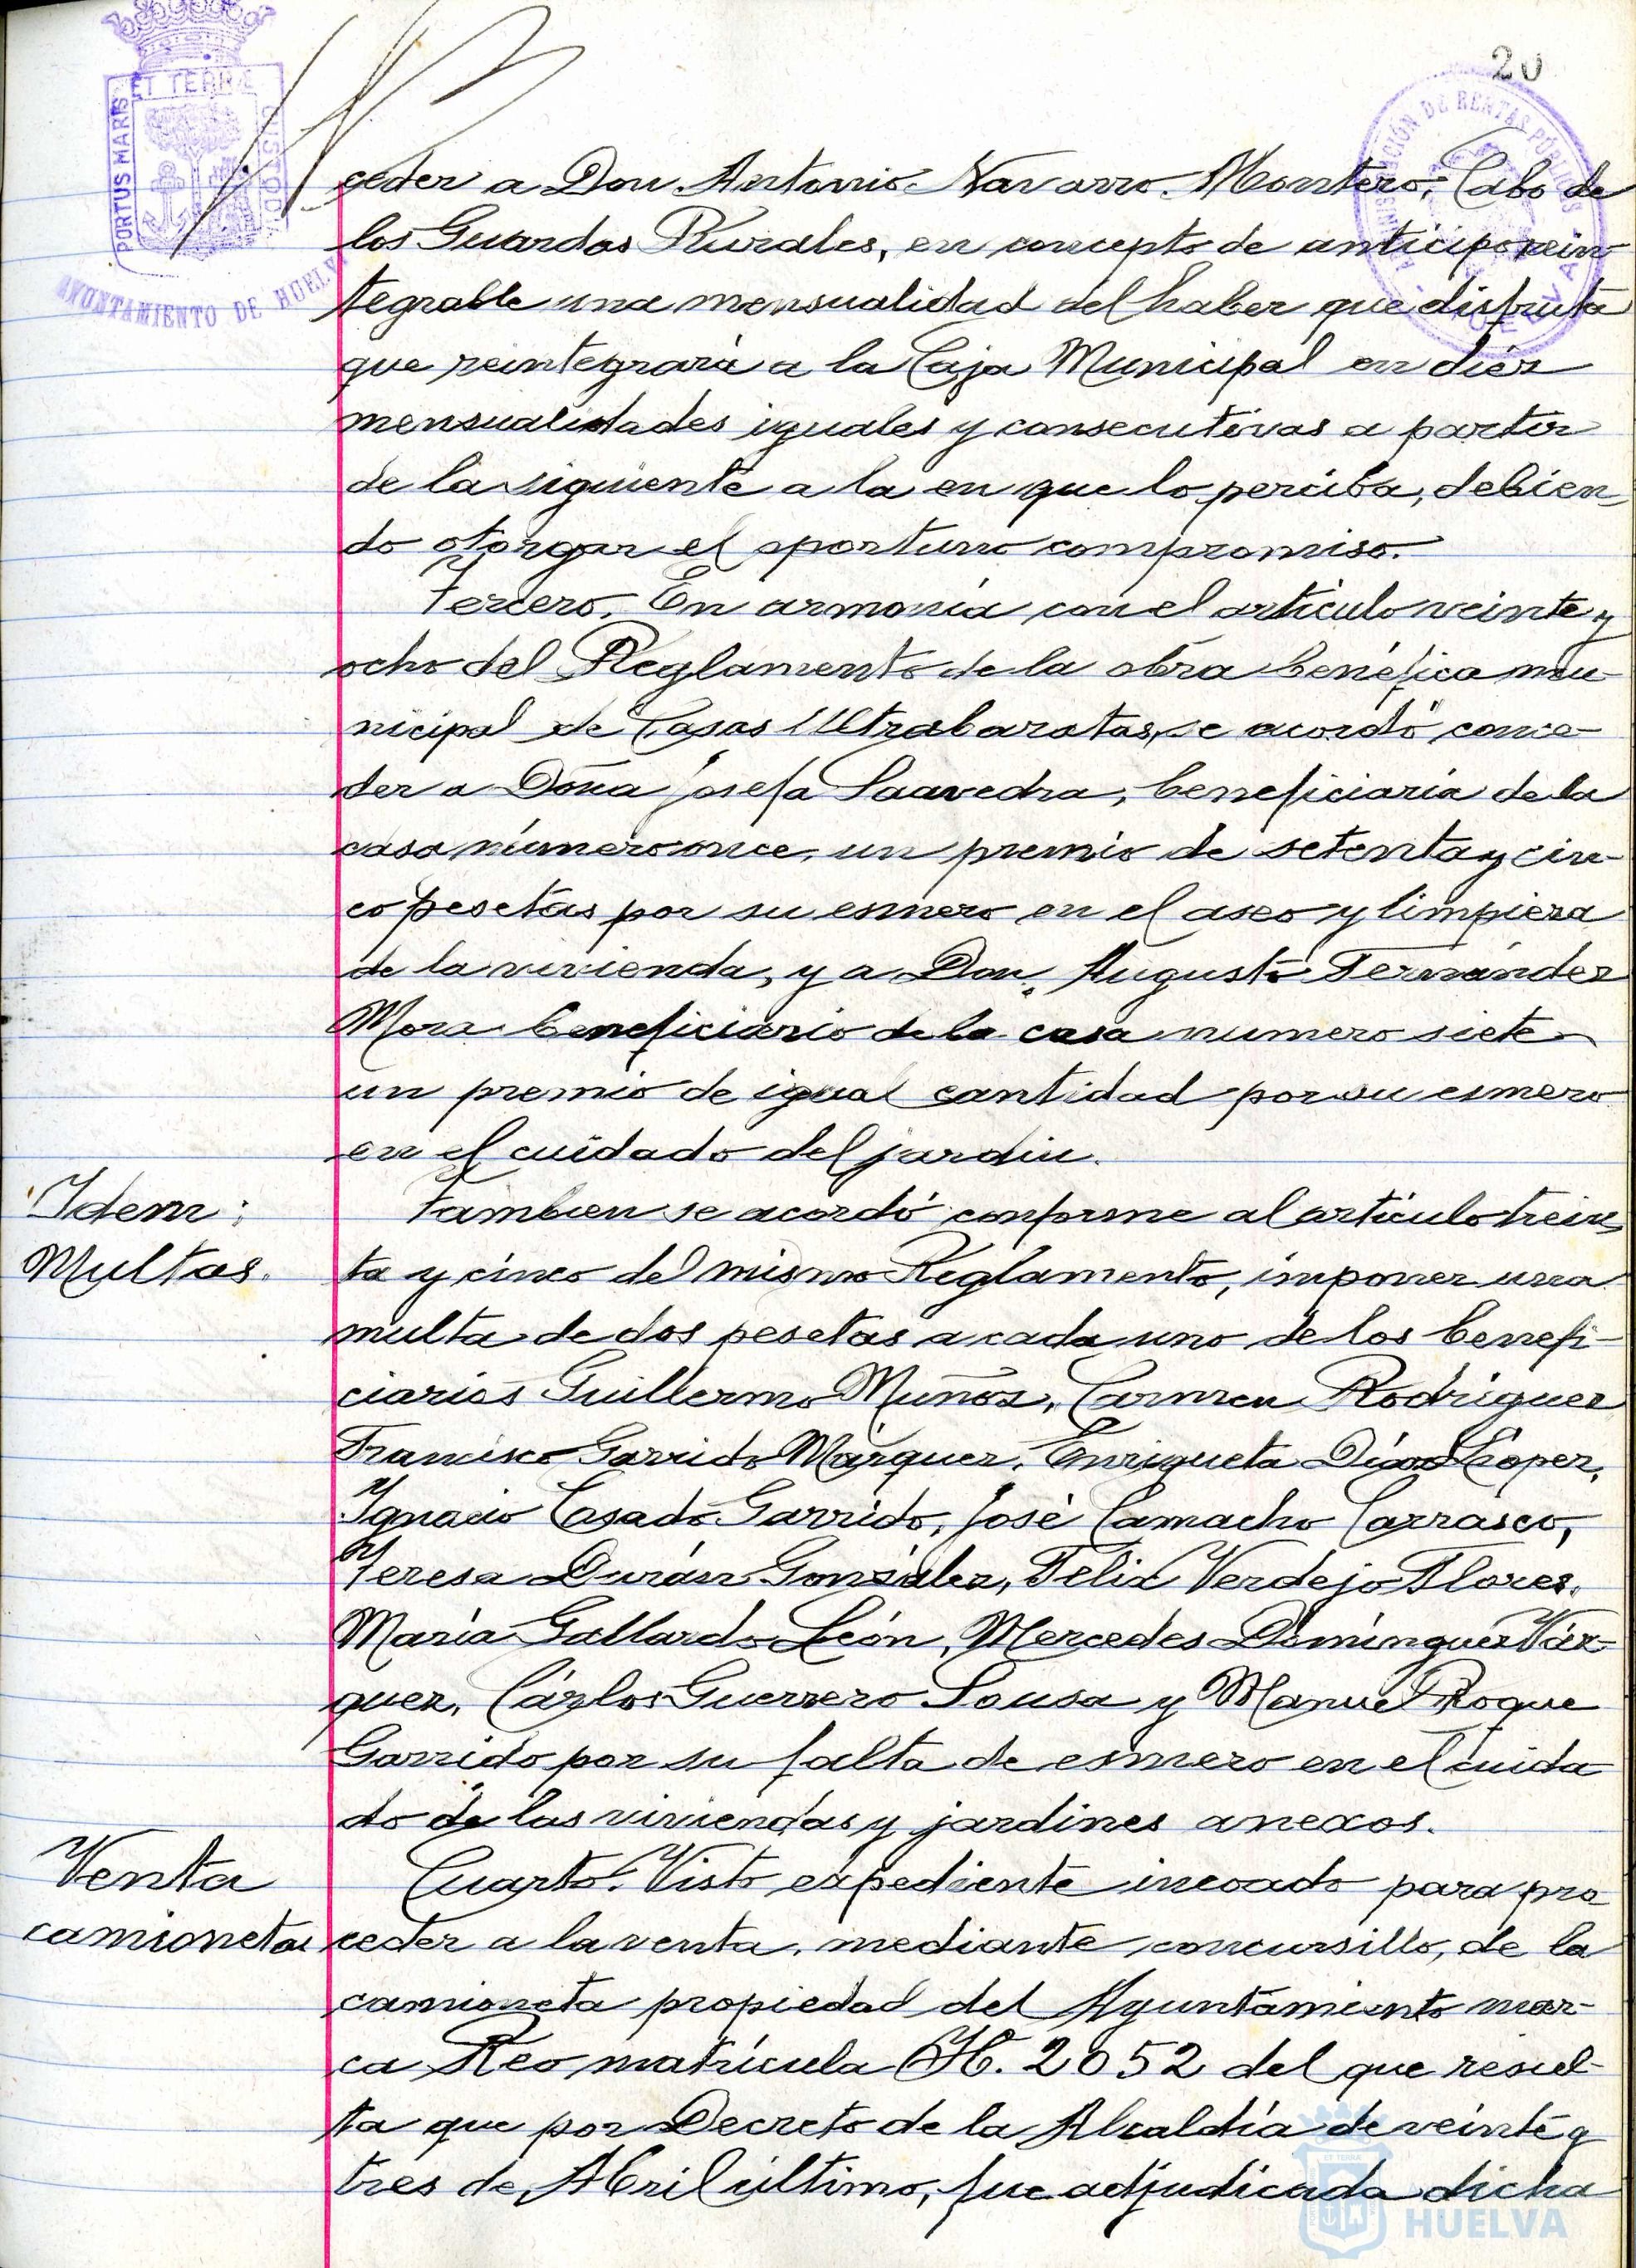 20
ET TERRÆ
PORTUS MARIS
CUSTODIA
AYUNTAMIENTO DE HUELVA
ADMINISTRACIÓN DE RENTAS PÚBLICAS
HUELVA
ceder a Don Antonio Navarro Montero, Cabo de
los Guardas Rurales, en concepto de anticipo rein-
tegrable una mensualidad del haber que disfruta
que reintegrará a la Caja Municipal en diez
mensualidades iguales y consecutivas a partir
de la siguiente a la en que lo perciba, debien-
do otorgar el oportuno compromiso.
Tercero. En armonía con el artículo veinte y
ocho del Reglamento de la obra benéfica mu-
nicipal de Casas Ultrabaratas, se acordó conce-
der a Doña Josefa Saavedra, beneficiaria de la
casa número once, un premio de setenta y cin-
co pesetas por su esmero en el aseo y limpieza
de la vivienda, y a Don Augusto Fernández
Mora beneficiario de la casa numero siete
un premio de igual cantidad por su esmero
en el cuidado del jardin.
Idem:
Multas.
Tambien se acordó conforme al artículo trein-
ta y cinco del mismo Reglamento, imponer una
multa de dos pesetas a cada uno de los benefi-
ciarios Guillermo Muñoz, Carmen Rodríguez
Francisco Garrido Márquez, Enriqueta Díaz López,
Ignacio Casado Garrido, José Camacho Carrasco,
Teresa Durán González, Félix Verdejo Flores,
María Gallardo León, Mercedes Domínguez Váz-
quez, Cárlos Guerrero Sousa y Manuel Roque
Garrido por su falta de esmero en el cuida
do de las viviendas y jardines anexos.
Venta
camionetas
Cuarto. Visto expediente incoado para pro
ceder a la venta, mediante concursillo, de la
camioneta propiedad del Ayuntamiento mar-
ca Reo matrícula H. 2052 del que resul-
ta que por Decreto de la Alcaldía de veinte y
tres de Abril último, fue adjudicada dicha
HUELVA